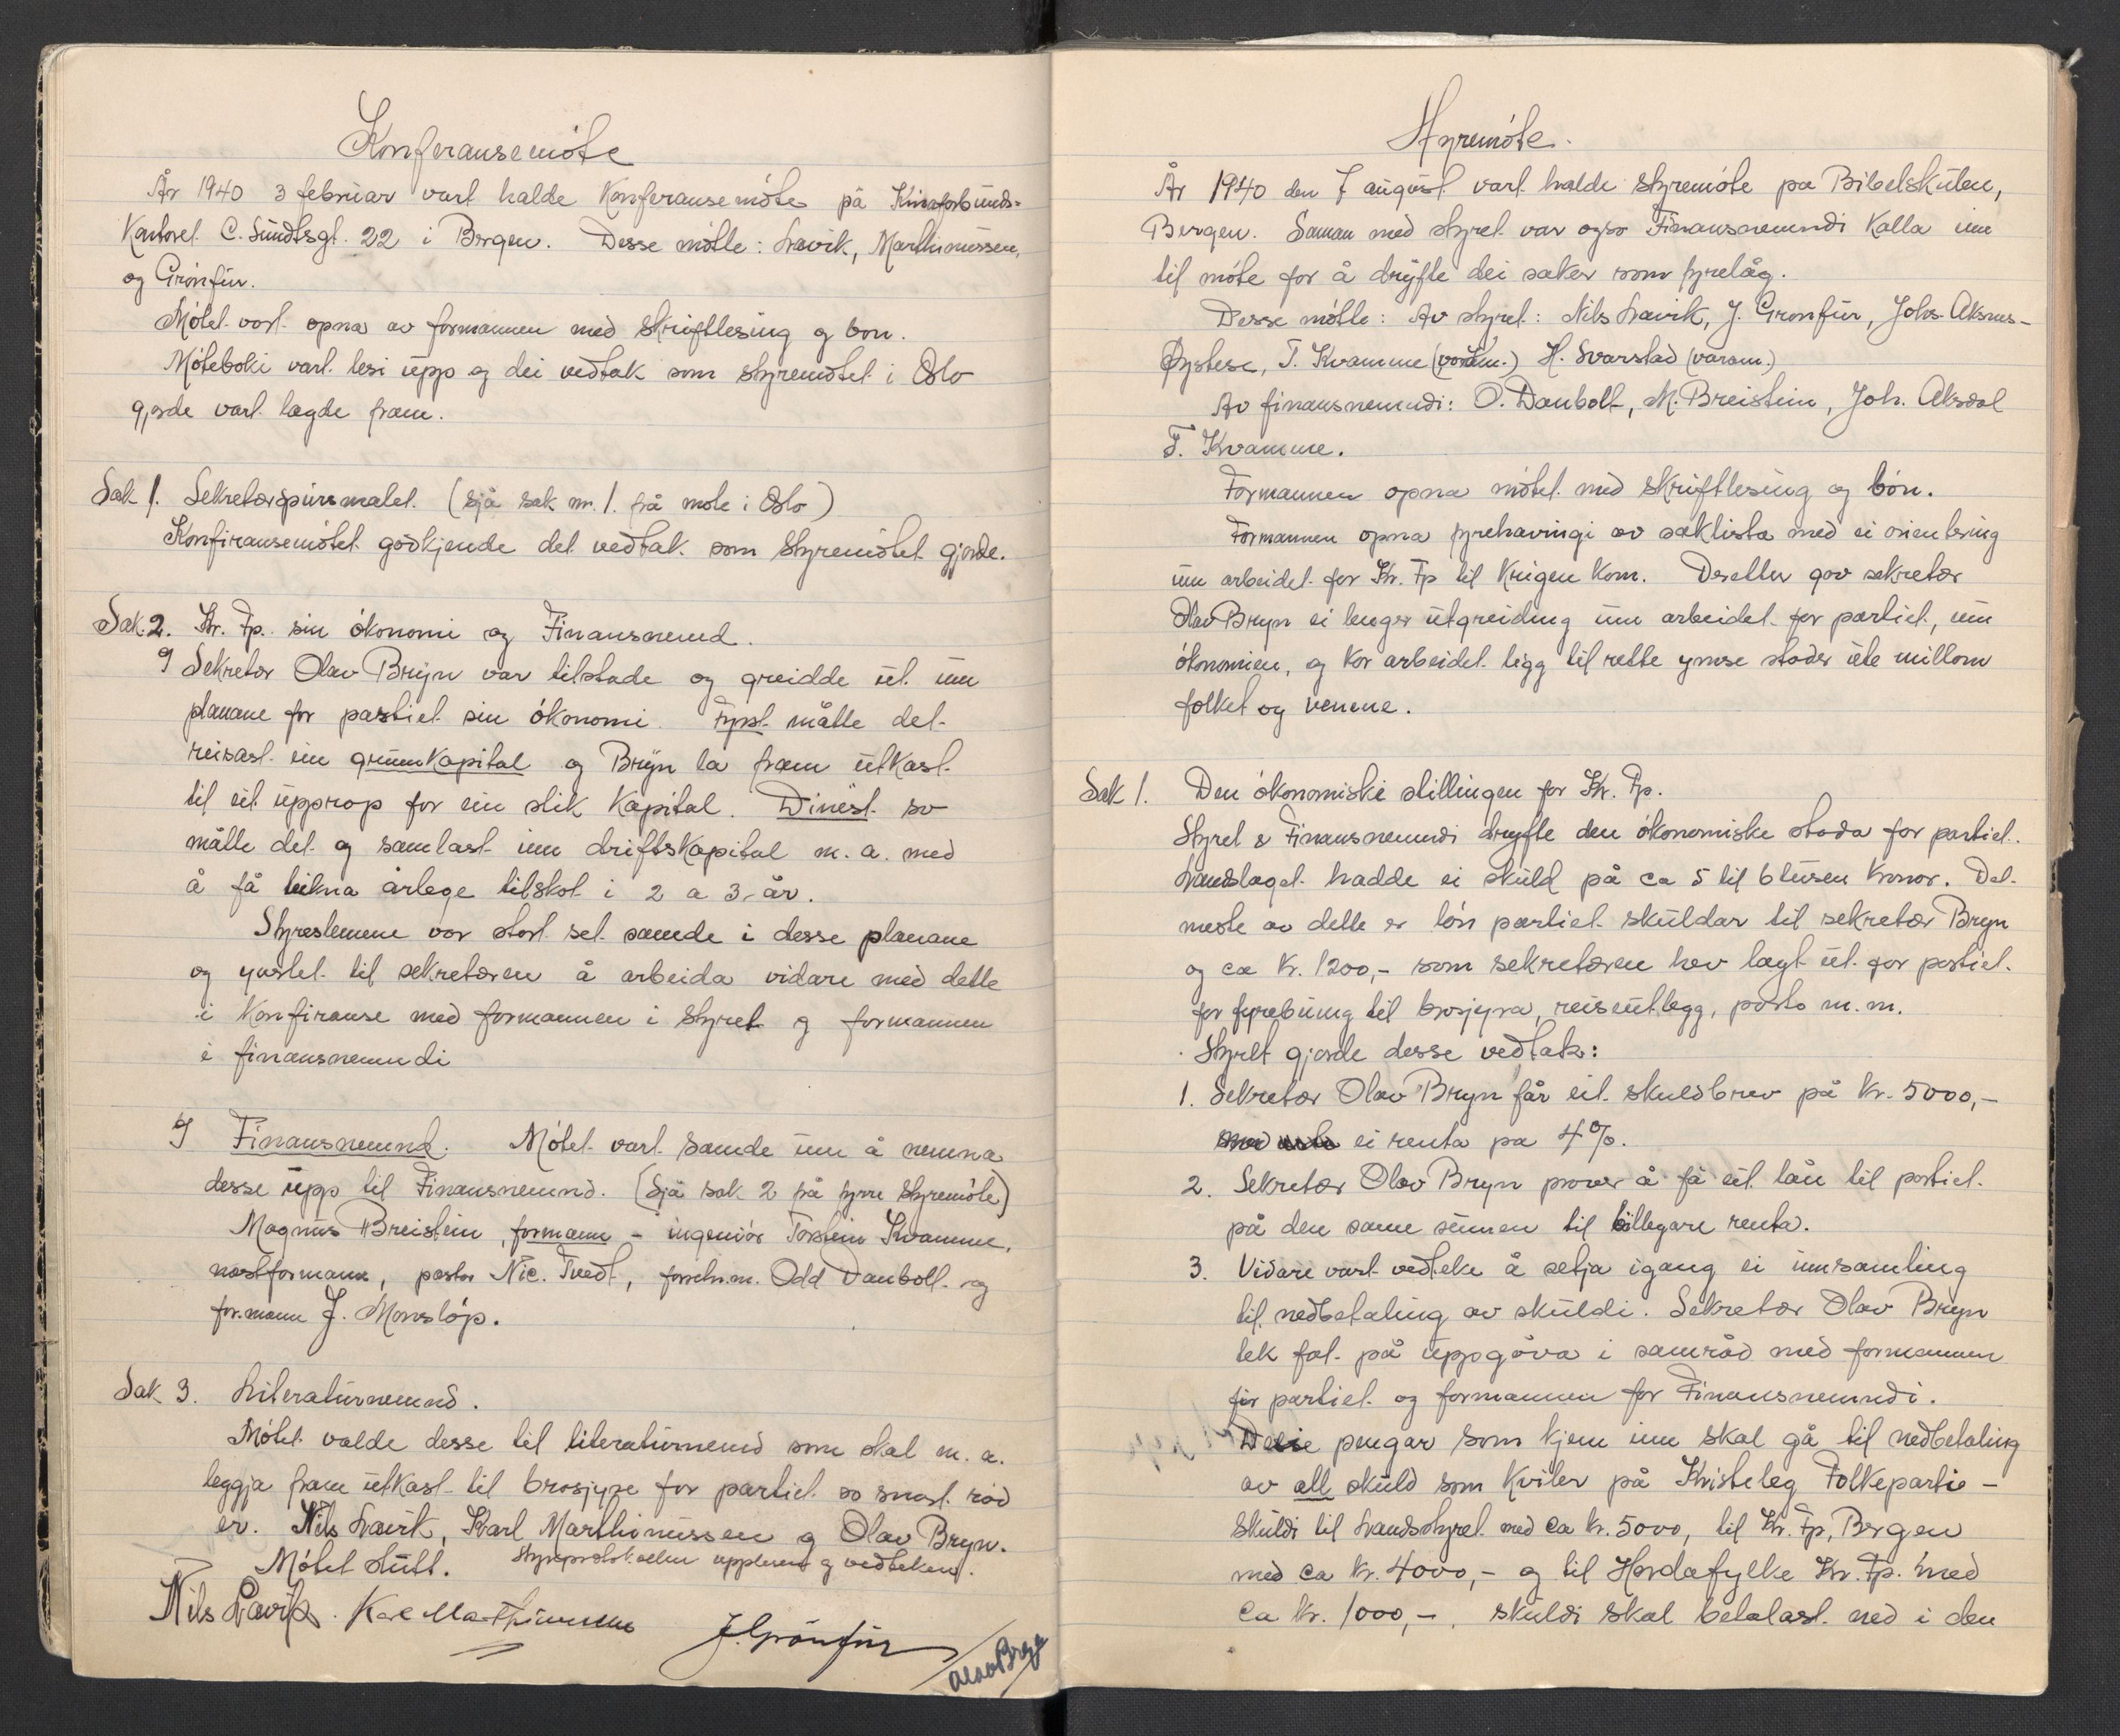 Konferansemöte
År 1940 3 februar vart halde Konferansemöte på Kinaforbunds-
Kontoret C. Sundtsgt. 22 i Bergen. Desse mötte: Lavik, Marthinussen,
og Grönfur.
Mötet vart opna av formannen med skriftlesing og bön.
Möteboki vart lesi upp og dei vedtak som styremötet i Oslo
gjorde vart lagde fram.
Sak 1. Sekretærspursmalet. (sjå sak nr. 1. frå möte i Oslo)
Konferansemötet godkjende det vedtak som Styremötet gjorde.
Sak 2. Kr. Fp. sin ökonomi og Finansnemnd.
Sekretær Olav Bryn var tilstade og greidde ut um
planane for partiet sin ökonomi. Fyrst måtte det
reisast ein grunnkapital og Bryn la fram utkast
til eit upprop for ein slik Kapital. Dinest so
måtte det og samlast inn driftskapital m. a. med
å få teikna årlege tilskot i 2 a 3 år.
Styreslemene var stort set samde i desse planane
og ynskte til sekretæren å arbeida vidare med dette
i Konferanse med formannen i Styret og formannen
i finansnemndi
Finansnemnd. Mötet vart samde um å nemna
desse upp til Finansnemnd. (Sjå sak 2 på fyrre styremöte)
Magnus Breistein, formann - ingeniör Torstein Kvamme,
næstformann, pastor Nic. Tvedt, forretn.m. Odd Danbolt og
for.mann J. Monslóp.
Sak 3. Literaturnemnd.
Mötet valde desse til literaturnemnd som skal m. a.
leggja fram utkast til brosjyre for partiet so snart råd
er. Nils Lavik, Karl Marthinussen og Olav Bryn.
Mötet slutt. Styreprotokollen upplesen og vedteken.
Nils Lavik. Karl Marthinussen J. Grönfur
Olav Bryn
Styremöte.
År 1940 den 7 august vart halde styremöte på Bibelskulen,
Bergen. Saman med styret var ogso Finansnemndi kalla inn
til möte for å dryfte dei saker som fyrelåg.
Desse mötte: Av styret: Nils Lavik, J. Grönfur, Johs. Aksnes-
Øystese, T. Kvamme (varam.) H. Svarstad (varam.)
Av finansnemndi: O. Danbolt, M. Breistein, Joh. Aksdal
T. Kvamme.
Formannen opna mötet med skriftlesing og bón.
Formannen opna fyrehavingi av saklista med ei orientering
um arbeidet for Kr. Fp til Krigen kom. Deretter gav sekretær
Olav Bryn ei lenger utgreiding um arbeidet for partiet, um
ökonomien, og kor arbeidet ligg til rette ymse stader ute millom
folket og venene.
Sak 1. Den ökonomiske stillingen for Kr. Fp.
Styret & Finansnemndi dryfte den ökonomiske stoda for partiet.
Landslaget hadde ei skuld på ca 5 til 6 tusen kronor. Det
meste av dette er lön partiet skuldar til sekretær Bryn
og ca kr. 1200,- som sekretæren hev lagt ut for partiet
for fyrebuing til brosjyra, reiseutlegg, porto m.m.
Styret gjorde desse vedtak:
1. Sekretær Olav Bryn får eit skuldbrev på kr. 5000,-
ei renta på 4%.
2. Sekretær Olav Bryn prover å få eit lån til partiet
på den same sumen til billegare renta.
3. Vidare vart vedteke å setja igang ei innsamling
til nedbetaling av skuldi. Sekretær Olav Bryn
tek fat på uppgåva i samråd med formannen
for partiet og formannen for Finansnemndi.
Desse pengar som kjem inn skal gå til nedbetaling
av all skuld som kviler på Kristeleg Folkeparti -
skuldi til Landsstyret med ca kr. 5000, til Kr. Fp, Bergen
med ca kr. 4000,- og til Hordafylke Kr. Fp. med
ca kr. 1000,-. skuldi skal betalast ned i den